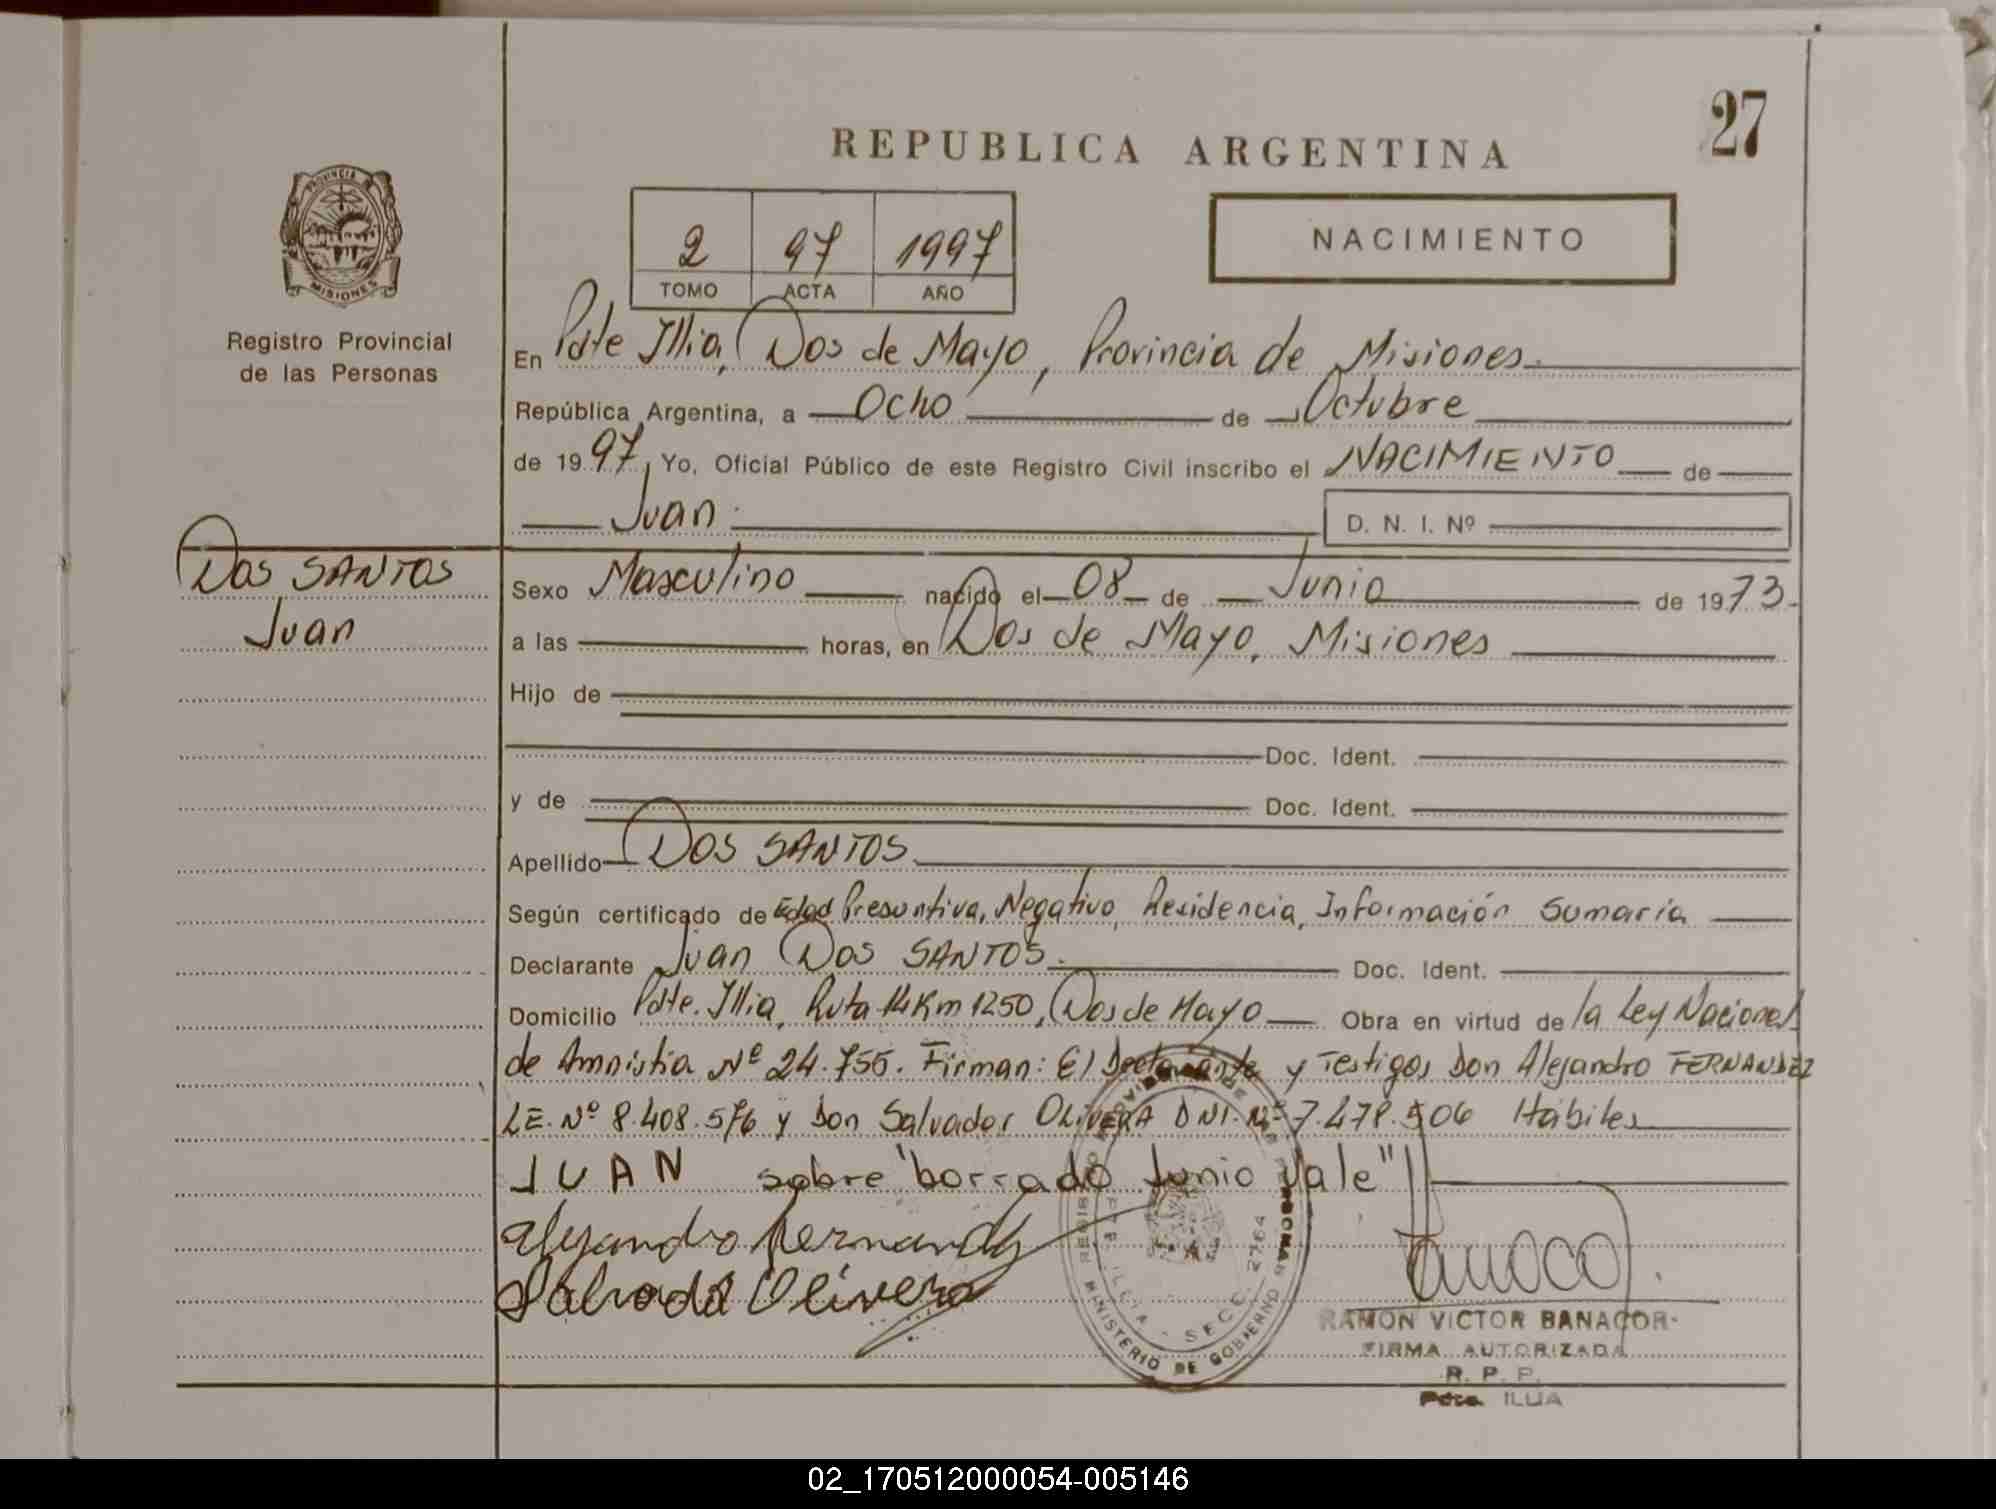 27
REPUBLICA ARGENTINA
PROVINCIA
MISIONES
Registro Provincial
de las Personas
2 97 1997
TOMO ACTA AÑO
NACIMIENTO
En Pdte Illia, Dos de Mayo, Provincia de Misiones
República Argentina, a Ocho de Octubre
de 1997, Yo, Oficial Público de este Registro Civil inscribo el NACIMIENTO de
Juan
D. N. I. Nº
DOS SANTOS
Juan
Sexo Masculino nacido el 08 de Junio de 1973
a las horas, en Dos de Mayo, Misiones
Hijo de
Doc. Ident.
y de Doc. Ident.
Apellido DOS SANTOS
Según certificado de Edad Presuntiva, Negativo, Residencia, Información Sumaria
Declarante Juan Dos SANTOS. Doc. Ident.
Domicilio Pdte. Illia, Ruta 14 Km 1250, Dos de Mayo Obra en virtud de la Ley Nacional
de Amnistia Nº 24.755. Firman: El Declarante y Testigos Don Alejandro FERNANDEZ
LE. Nº 8.408.576 y Don Salvador OLIVERA DNI. Nº 7.478.506 Hábiles
JUAN sobre "borrado Junio Vale"
Alejandro Fernandez
Salvador Olivera
MINISTERIO DE GOBIERNO
SECC. 2764
RAMON VICTOR BANACOR
FIRMA AUTORIZADA
R. P. P.
Pdte. ILLIA
02_170512000054-005146